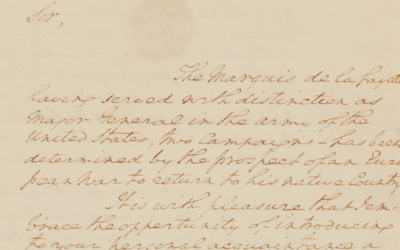 Sir,
The Marquis de la Fayette
having served with distinction as
Major General in the army of the
United States, two Campaigns – has been
determined by the prospect of an Euro
pean War to return to his native Country.
It is with pleasure that I em-
brace the opportunity of introducing
to your personal acquaintance a